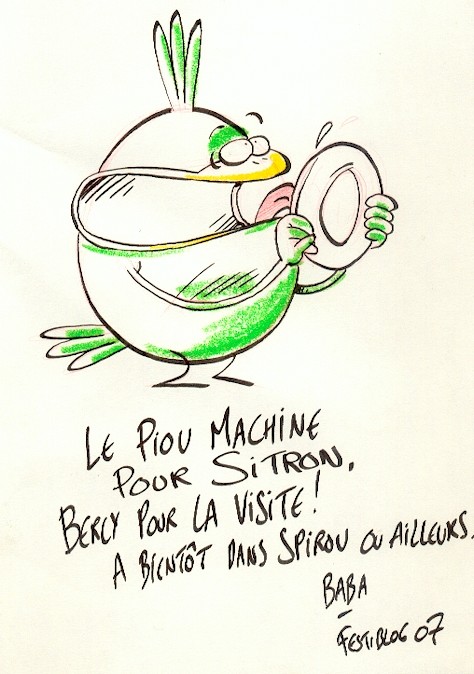 LE PIOU MACHINE
POUR SITRON,
BERCY POUR LA VISITE!
A BIENTÔT DANS SPIROU OU AILLEURS.
BABA
FESTIBLOG 07